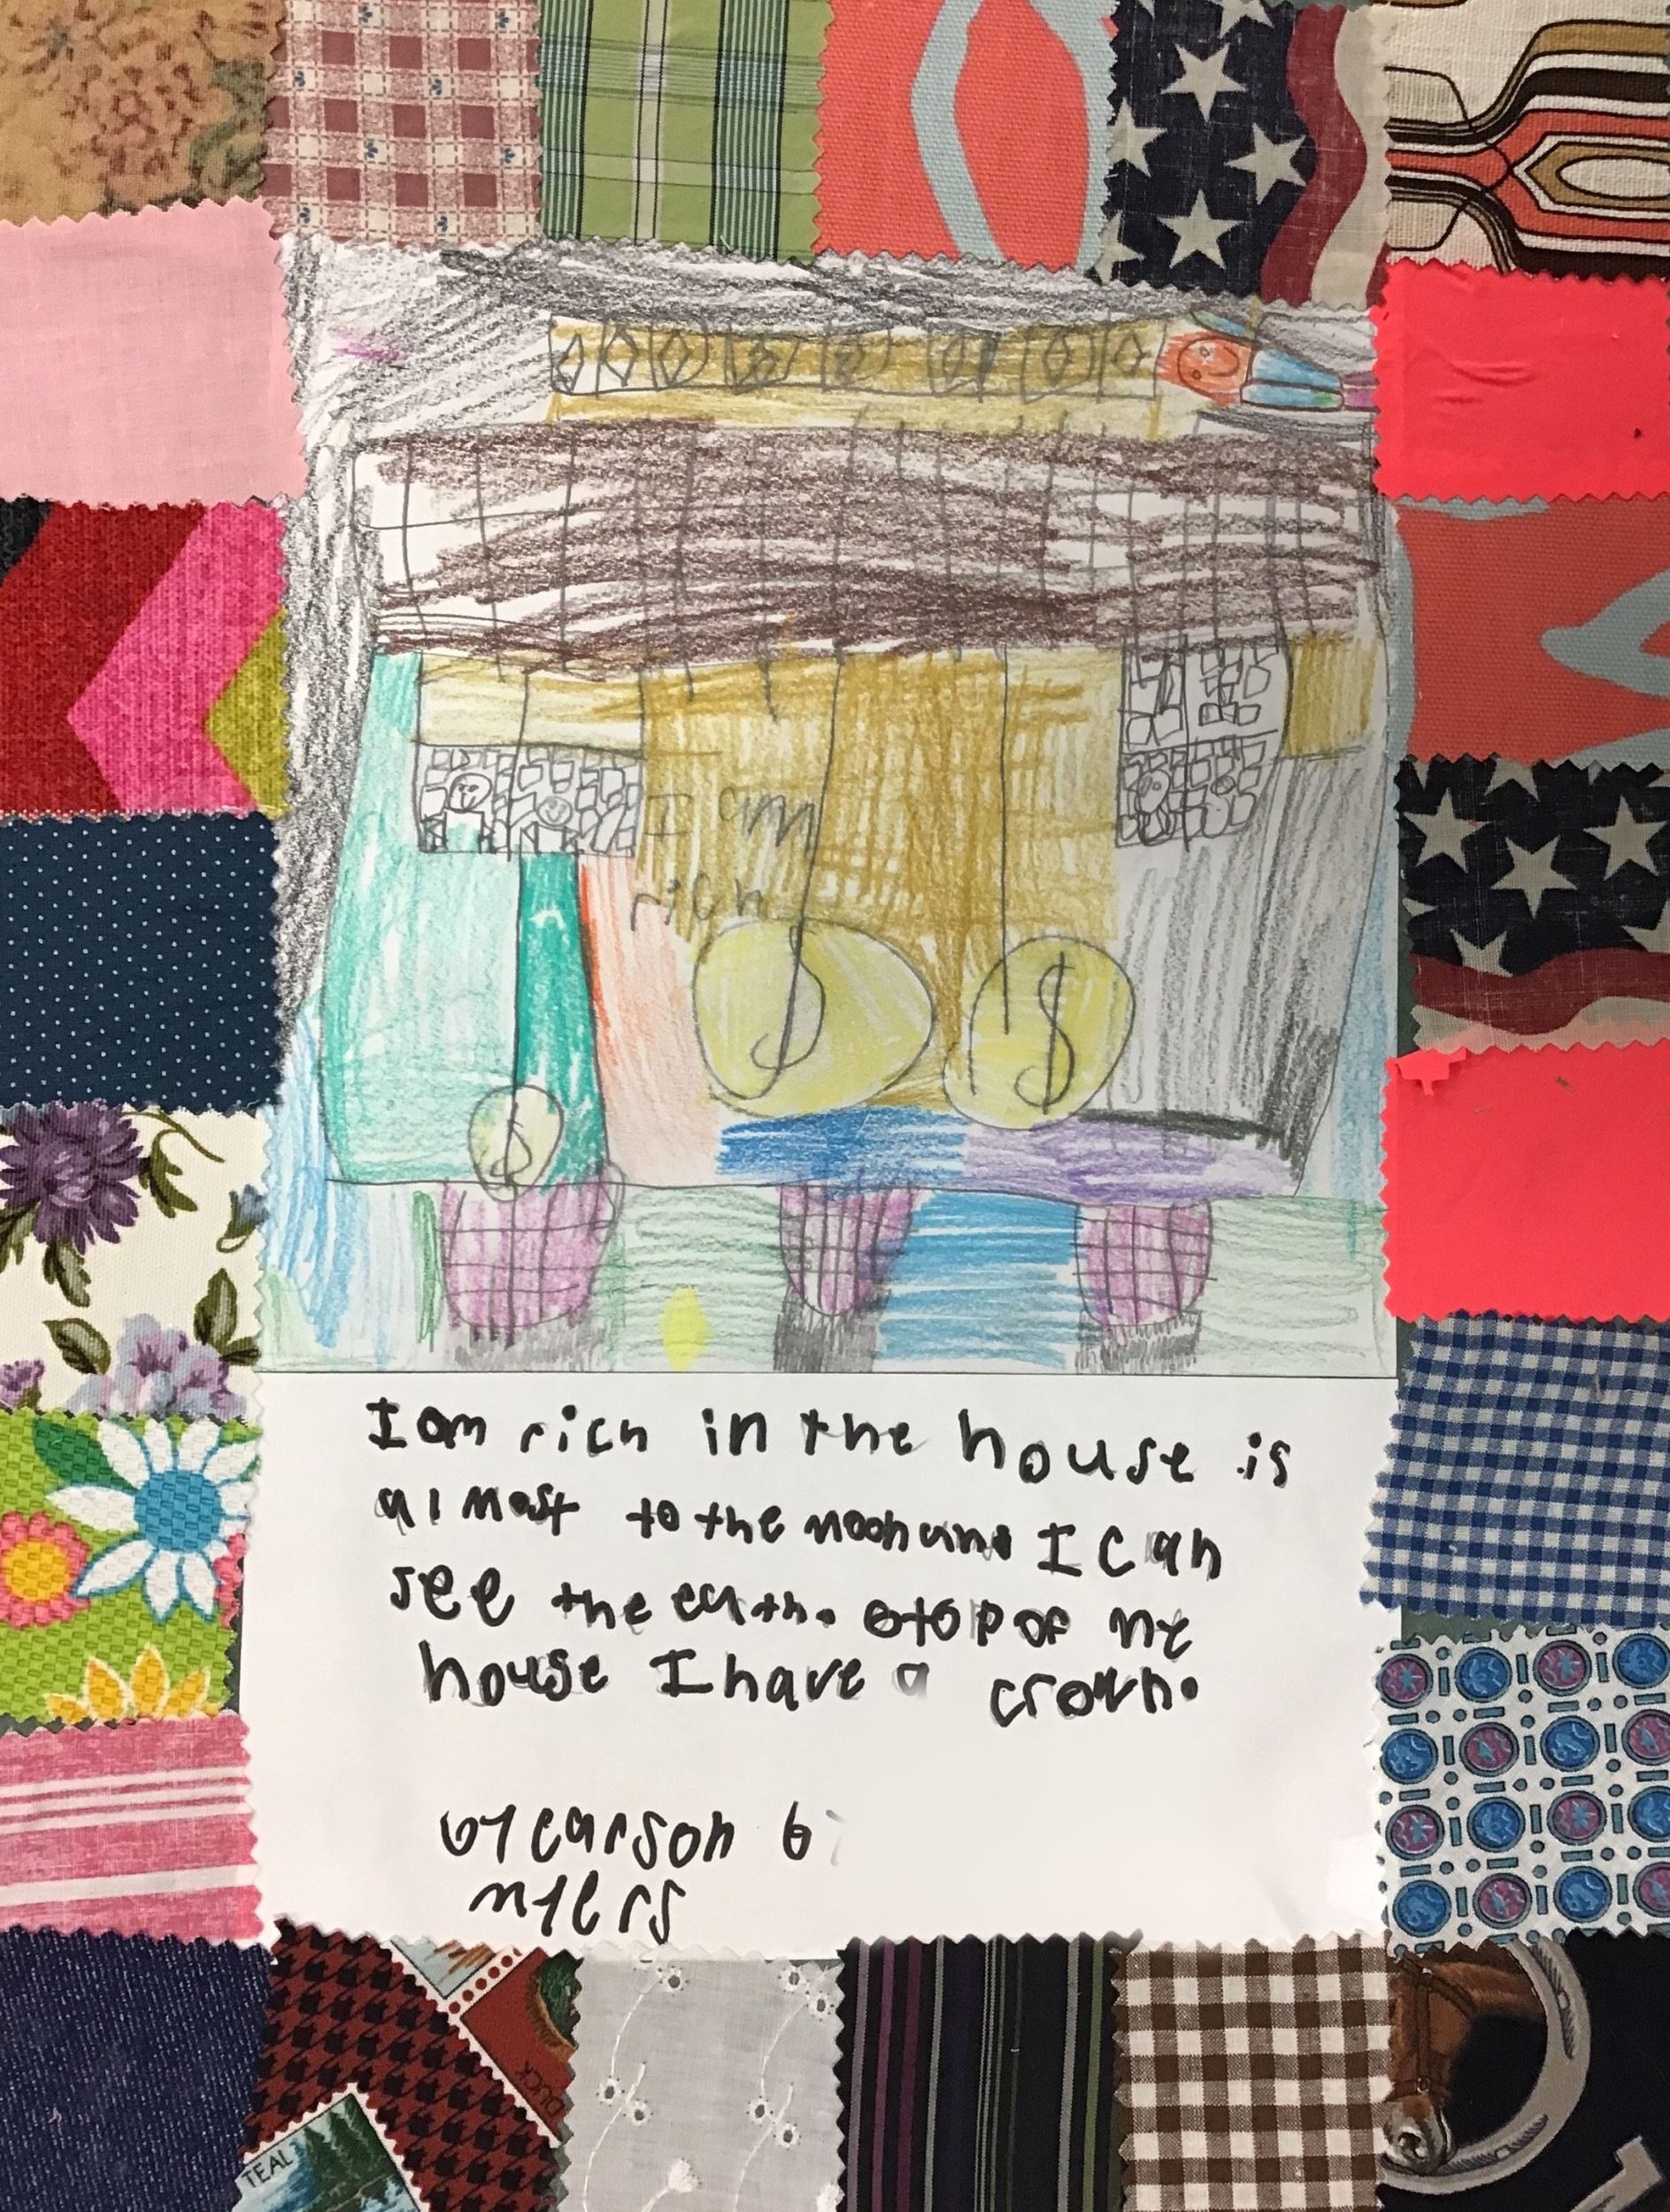 I am
rich
$ $
$
I am rich in the house is
almost to the moon and I can
see the earth. otop of my
house I have a crown.
by carson b
myers
DUCK
TEAL